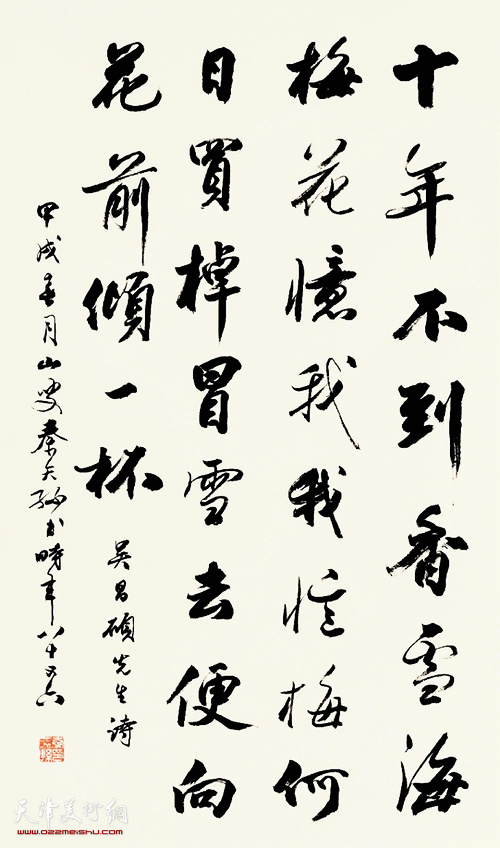 十年不到香雪海
梅花憶我我憶梅何
日買棹冒雪去便向
花前傾一杯
吳昌碩先生詩
甲戌春月山叟秦天书時年八十又六
天津美術網
www.022meishu.com